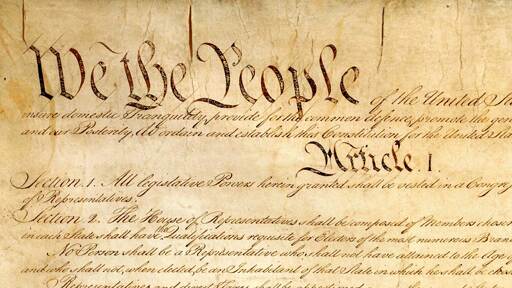 We the People of the United Sta
insure domestic Tranquility, provide for the common defence, promote the gen
and our Posterity, do ordain and establish this Constitution for the United Sta
Article. I.
Section. 1. All legislative Powers herein granted shall be vested in a Congr
of Representatives.
Section. 2. The House of Representatives shall be composed of Members chosen
in each State shall have the Qualifications requisite for Electors of the most numerous Bran
No Person shall be a Representative who shall not have attained to the Age of
and who shall not, when elected, be an Inhabitant of that State in which he shall be chosen
Representatives and direct Taxes shall be apportioned among the several States